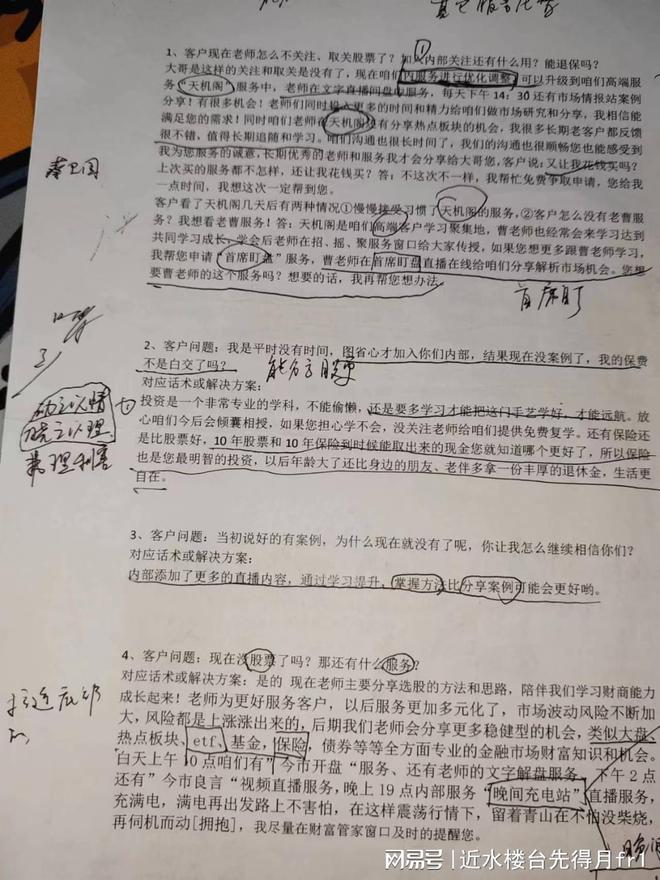 1、客户现在老师怎么不关注、取关股票了?加入内部关注还有什么用?能退保吗?
大哥是这样的关注和取关是没有了,现在咱们内服务进行优化调整,可以升级到咱们高端服
务“天机阁”服务中,老师在文字直播间盘中服务,每天下午 14:30 还有市场情报站案例
分享!有很多机会!老师们同时投入更多的时间和精力给咱们做市场研究和分享,我相信能
满足您的需求!同时咱们老师在天机阁还有分享热点板块的机会,我很多长期老客户都反馈
很不错,值得长期追随和学习。咱们沟通也很长时间了,我们的沟通也很顺畅您也能感受到
我为您服务的诚意,长期优秀的老师和服务我才会分享给大哥您,客户说:又让我花钱买吗?
上次买的服务都不怎样,还让我花钱买?答:不这次不一样,我帮忙免费争取申请,您给我
一点时间,我想这次一定帮到您。
客户看了天机阁几天后有两种情况①慢慢接受习惯了天机阁的服务,②客户怎么没有老曹服
务?我想看老曹服务!答:天机阁是咱们高端客户学习聚集地,曹老师也经常会来学习达到
共同学习成长,学会后老师在招、摇、聚服务窗口给大家传授,如果您想更多跟曹老师学习,
我帮您申请“首席盯盘”服务,曹老师在首席盯盘直播在线给咱们分享解析市场机会。您想
要曹老师的这个服务吗?想要的话,我再帮您想办法。
首席盯
2、客户问题:我是平时没有时间,图省心才加入你们内部,结果现在没案例了,我的保费
不是白交了吗?
对应话术或解决方案:
投资是一个非常专业的学科,不能偷懒,还是要多学习才能把这门手艺学好,才能远航。放
心咱们今后会倾囊相授,如果您担心学不会,没关注老师给咱们提供免费复学。还有保险还
是比股票好,10 年股票和 10 年保险到时候能取出来的现金您就知道哪个更好了,所以保险
也是您最明智的投资,以后年龄大了还比身边的朋友、老伴多拿一份丰厚的退休金,生活更
自在。
动之以情
晓之以理
3、客户问题:当初说好的有案例,为什么现在就没有了呢,你让我怎么继续相信你们?
对应话术或解决方案:
内部添加了更多的直播内容,通过学习提升,掌握方法比分享案例可能会更好哟。
4、客户问题:现在没股票了吗?那还有什么服务?
对应话术或解决方案:是的 现在老师主要分享选股的方法和思路,陪伴我们学习财商能力
成长起来!老师为更好服务客户,以后服务更加多元化了,市场波动风险不断加
大,风险都是上涨涨出来的,后期我们老师会分享更多稳健型的机会,类似大盘、
热点板块、etf、基金,保险,债券等等全方面专业的金融市场财富知识和机会。
白天上午 10 点咱们有”今市开盘“服务、还有老师的文字解盘服务、下午 2 点
还有”今市良言“视频直播服务,晚上 19 点内部服务“晚间充电站”直播服务,
充满电,满电再出发路上不害怕,在这样震荡行情下,留着青山在不怕没柴烧,
再伺机而动[拥抱],我尽量在财富管家窗口及时的提醒您。
网易号 | 近水楼台先得月fr1